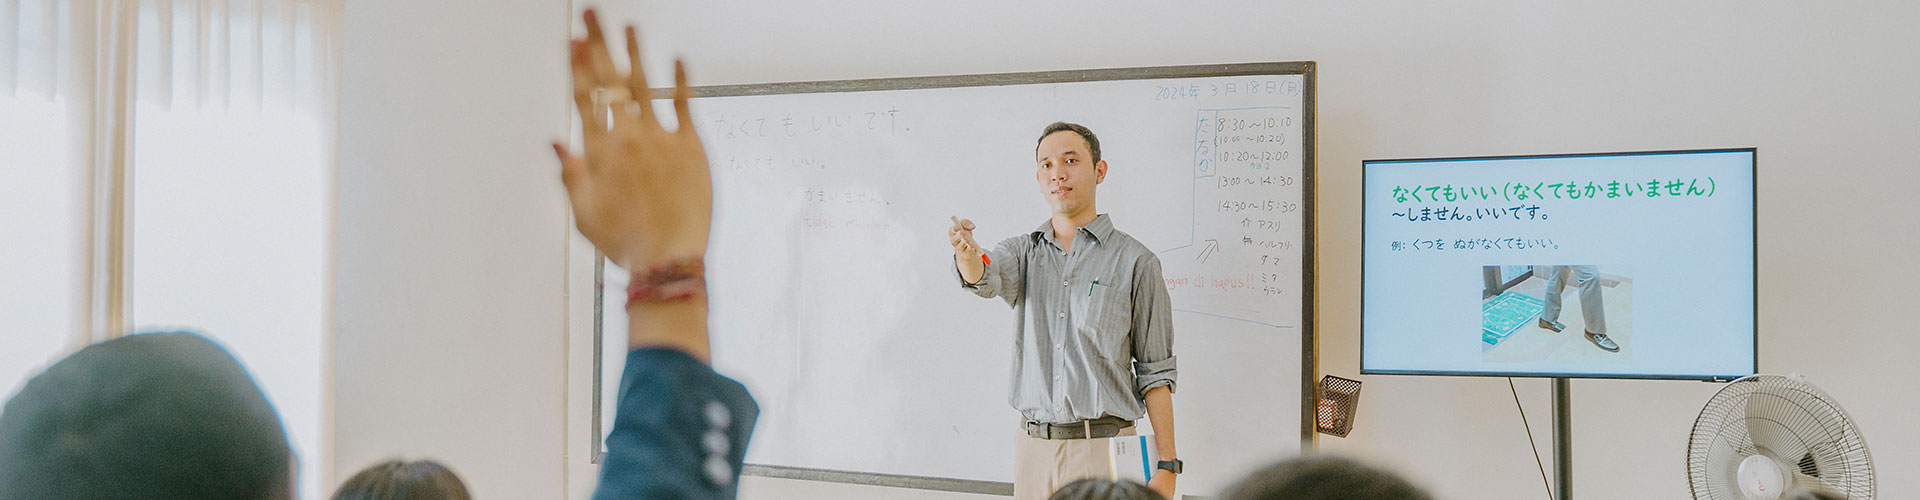 なくてもいいです。
〜なくても いい。
かまいません。
2024年 3月 18日(月)
たなか
8:30〜10:10
(10:00〜10:20)
10:20〜12:00
13:00〜14:30
14:30〜15:30
アスリ
ngan di hapus!!
なくてもいい(なくてもかまいません)
〜しません。いいです。
例: くつを ぬがなくてもいい。